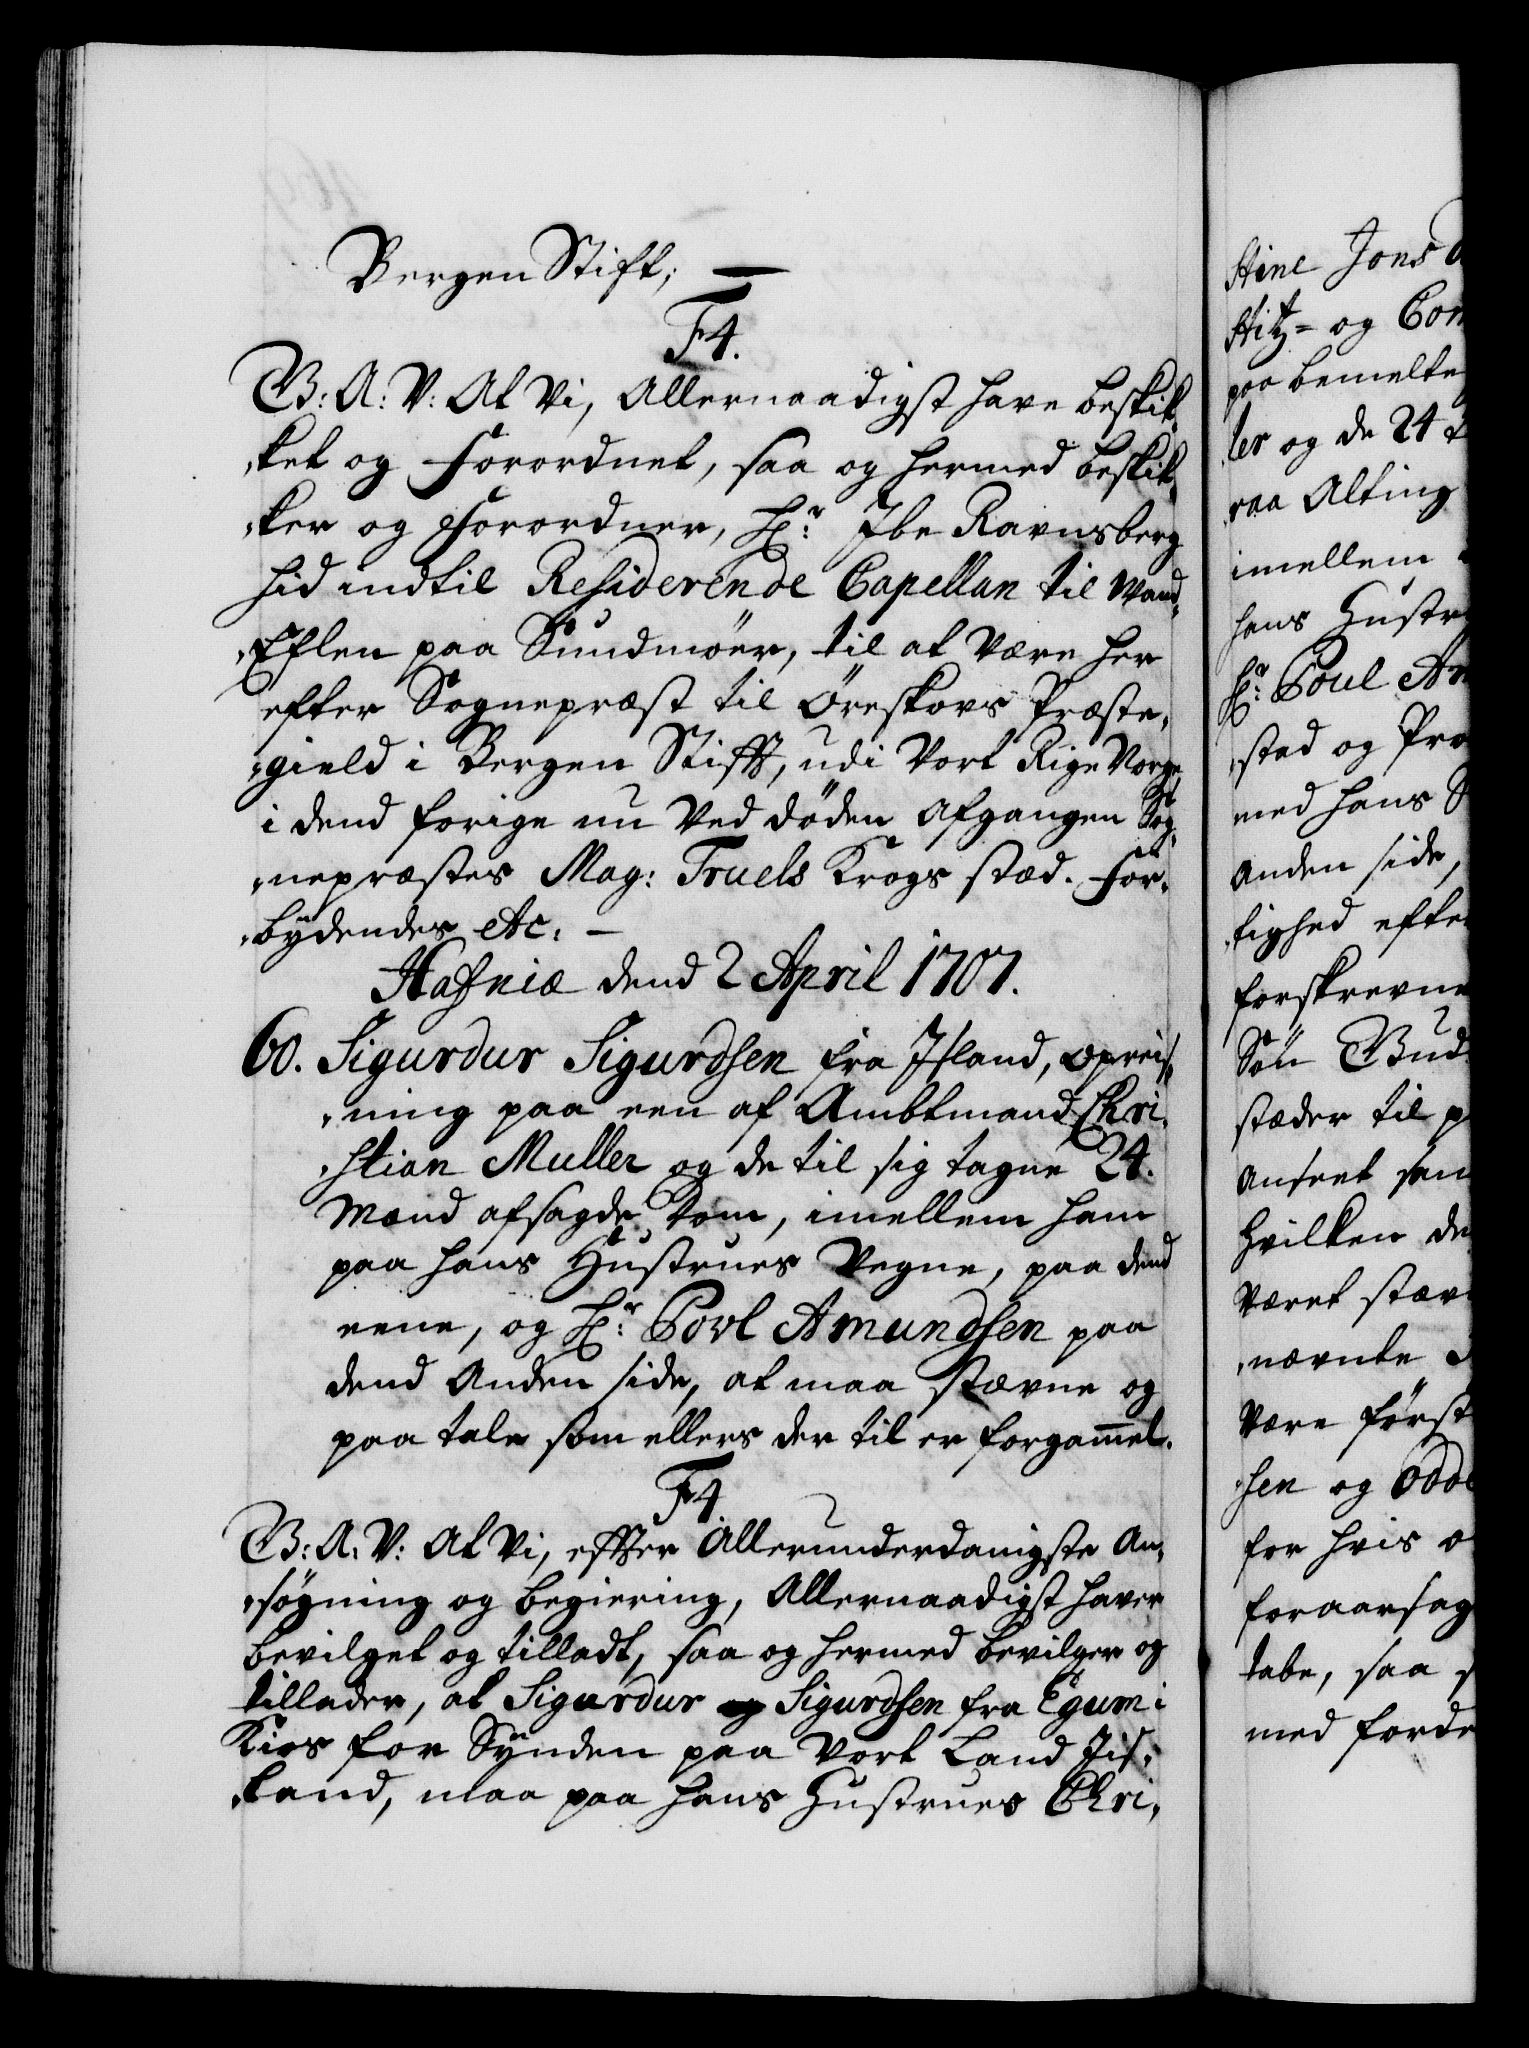 Bergen Stift; —
F4.
G: A: V: At Vi, Allernaadigst have beskik¬
¬ket og Forordnet, saa og hermed beskik¬
¬ker og Forordner, Hr: Ibe Ravnsberg
hid indtil Residerende Capellan til Wand¬
¬Eflen paa Sundmöer, til at Være her
efter Sognepræst til Öreskovs Præste¬
¬gield i Bergen Stifft, udi Vort Rige Norge
i dend forige nu Ved döden Afgangen Sog¬
¬nepræstes Mag: Truels Krogs stæd. For¬
¬bÿdendes etc: —
Hafniæ dend 2 April 1707.
60. Sigurdur Sigurdsen fra Island, opreis¬
¬ning paa een af Ambtmand Chri¬
¬stian Muller og de til sig tagne 24.
Mænd afsagde Dom, imellem ham
paa hans Hustrues Vegne, paa dend
eene, og Hr: Povl Amundsen paa
dend Anden side, at maa stævne og
paa tale som ellers der til er forgamel.
F4
G: A: V: At Vi, effter Allerunderdanigste An¬
¬søgning og begiering, Allernaadigst haver
bevilget og tilladt, saa og hermed bevilger og
tillader, at Sigurdur Sigurdsen fra Egum i
Kios for Sÿnden paa Vort Land Jis¬
¬land, maa paa hans Hustrues Chri¬
stine Jons
stitz= og Com
paa bemelte
ler og de 24
paa Alting
imellem
hans Hustr
Hr: Poul Am
¬stad og Pro
med hans
Anden side,
¬tighed efte
forskrevne
Sön Gud
stæder til p
Anseet sam
Hvilken de
Været stæv
¬nævnte
Være først
¬sen og Odde
for hvis
foraarsag
tabe, saa
med forde